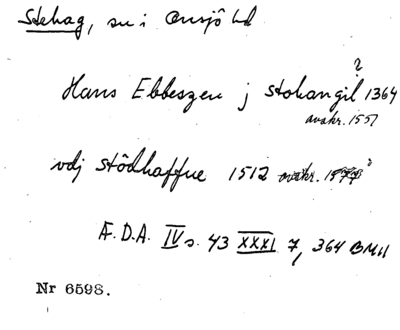 Stehag, sn i Onsjö hd
?
Hans Ebbeszen j stohangil 1364
avskr. 1551
vdj stödhaffue 1512 avskr. ?
Æ.D.A. IV s. 43 XXXI 7, 364 BMH
Nr 6598.